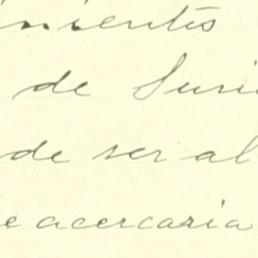 nientos
de Suri
de ser al
e acercaria